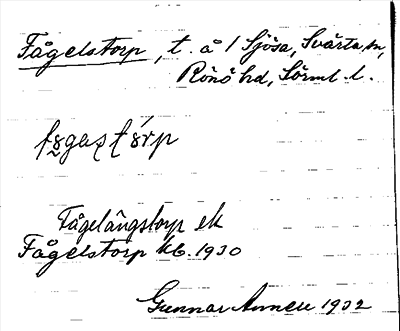 Fågelstorp, t. å 1 Sjösa, Svärta sn,
Rönö hd, Sörml. l.
Fågelängstorp ek
Fågelstorp kb. 1930
Gunnar Annell 1932